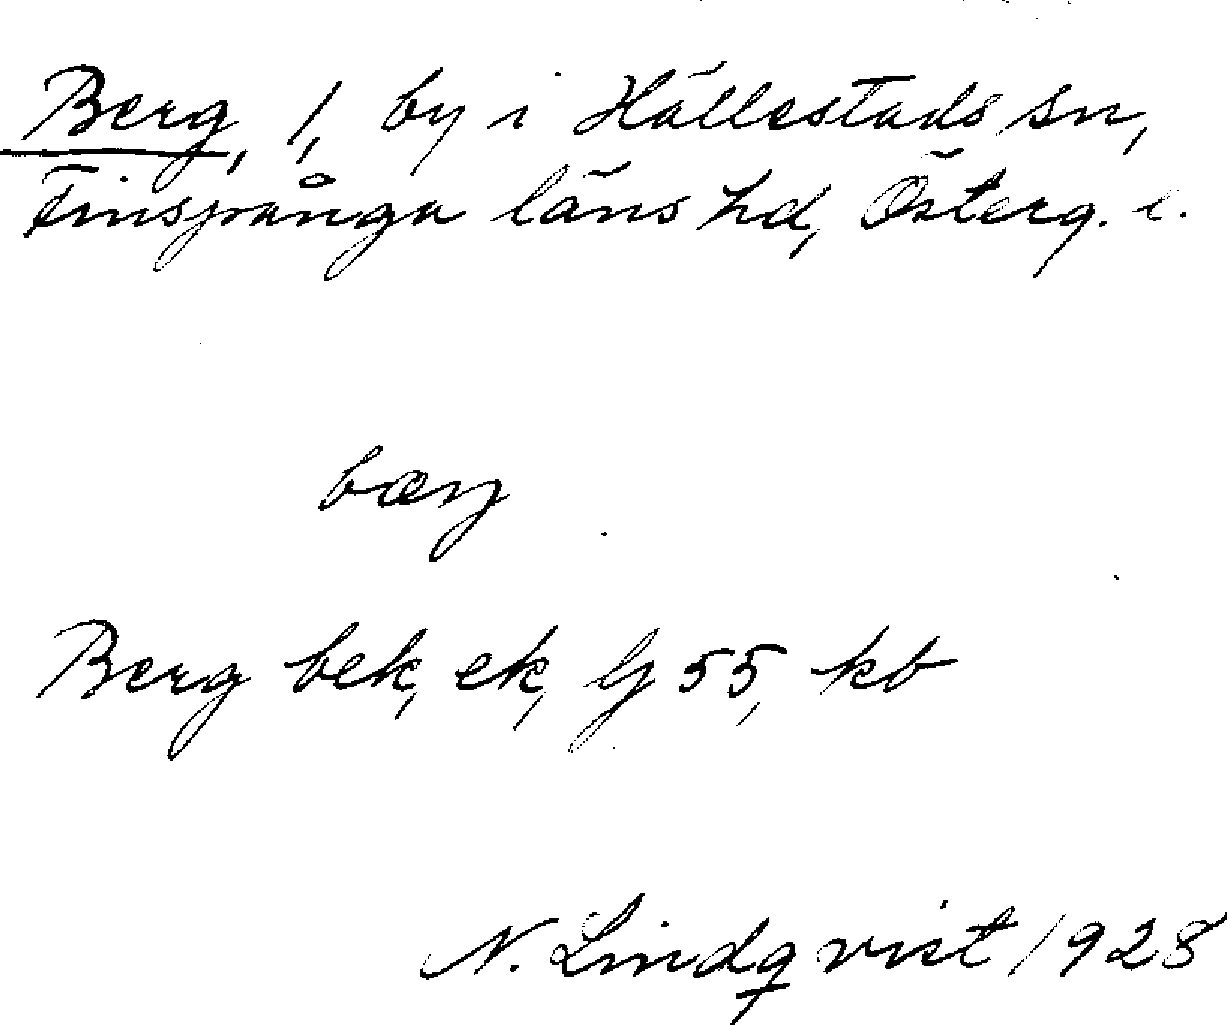 Berg, 1, by i Hällestads sn,
Finspånga läns hd, Österg. l.
bærj
Berg bek, ek, lj 55, kb
N. Lindqvist 1928